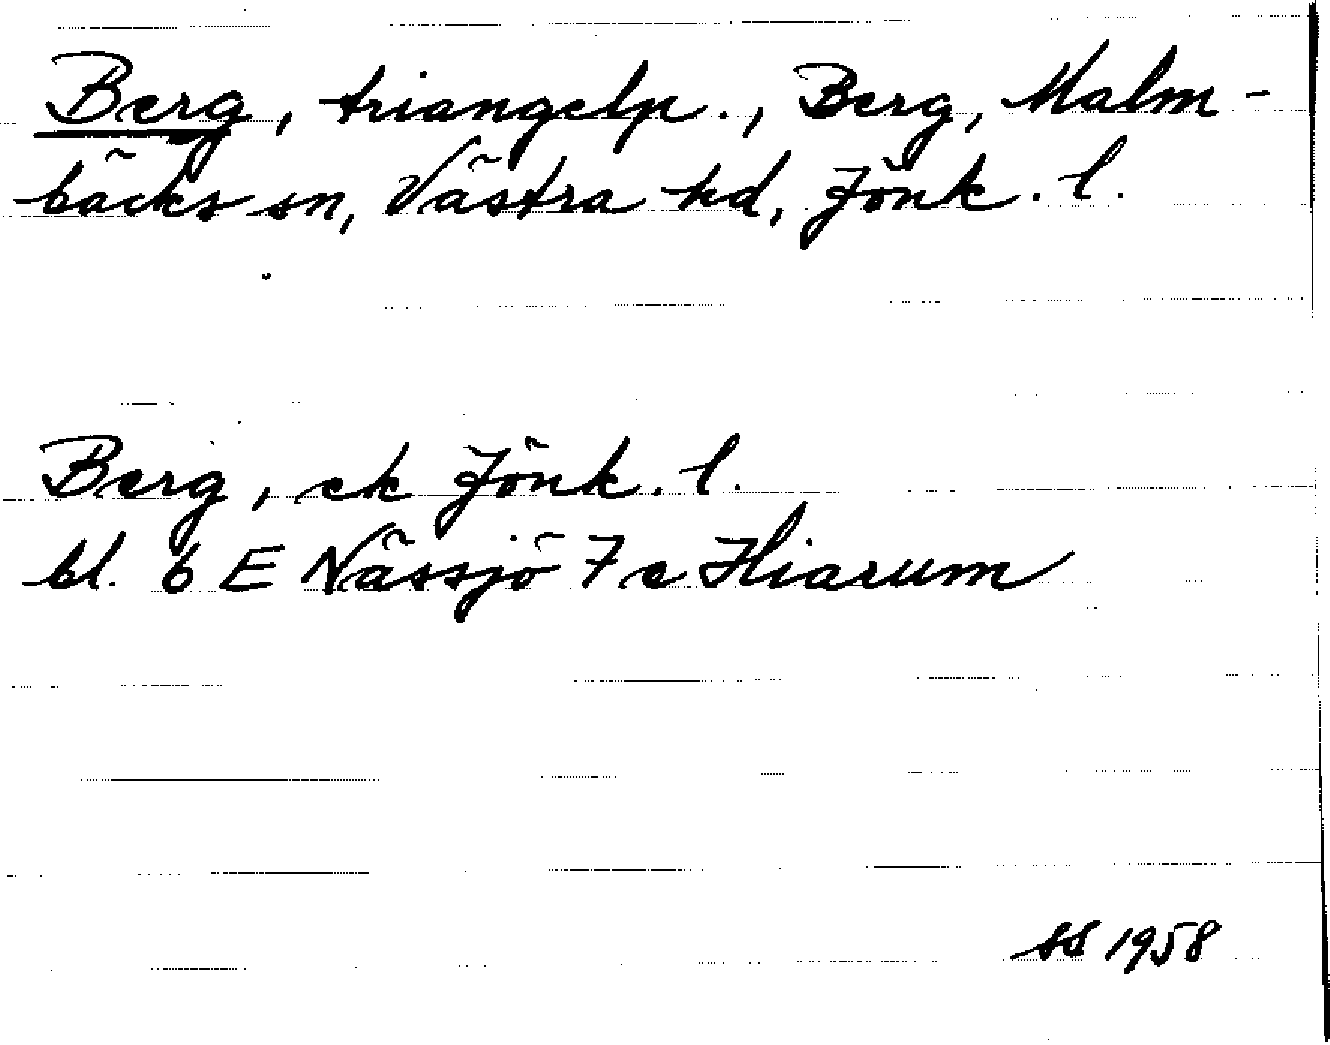 Berg, triangelp., Berg, Malm-
bäcks sn, Västra hd, Jönk. l.
Berg, ek Jönk. l.
bl. 6 E Nässjö 7 e Hiarum
SS 1958